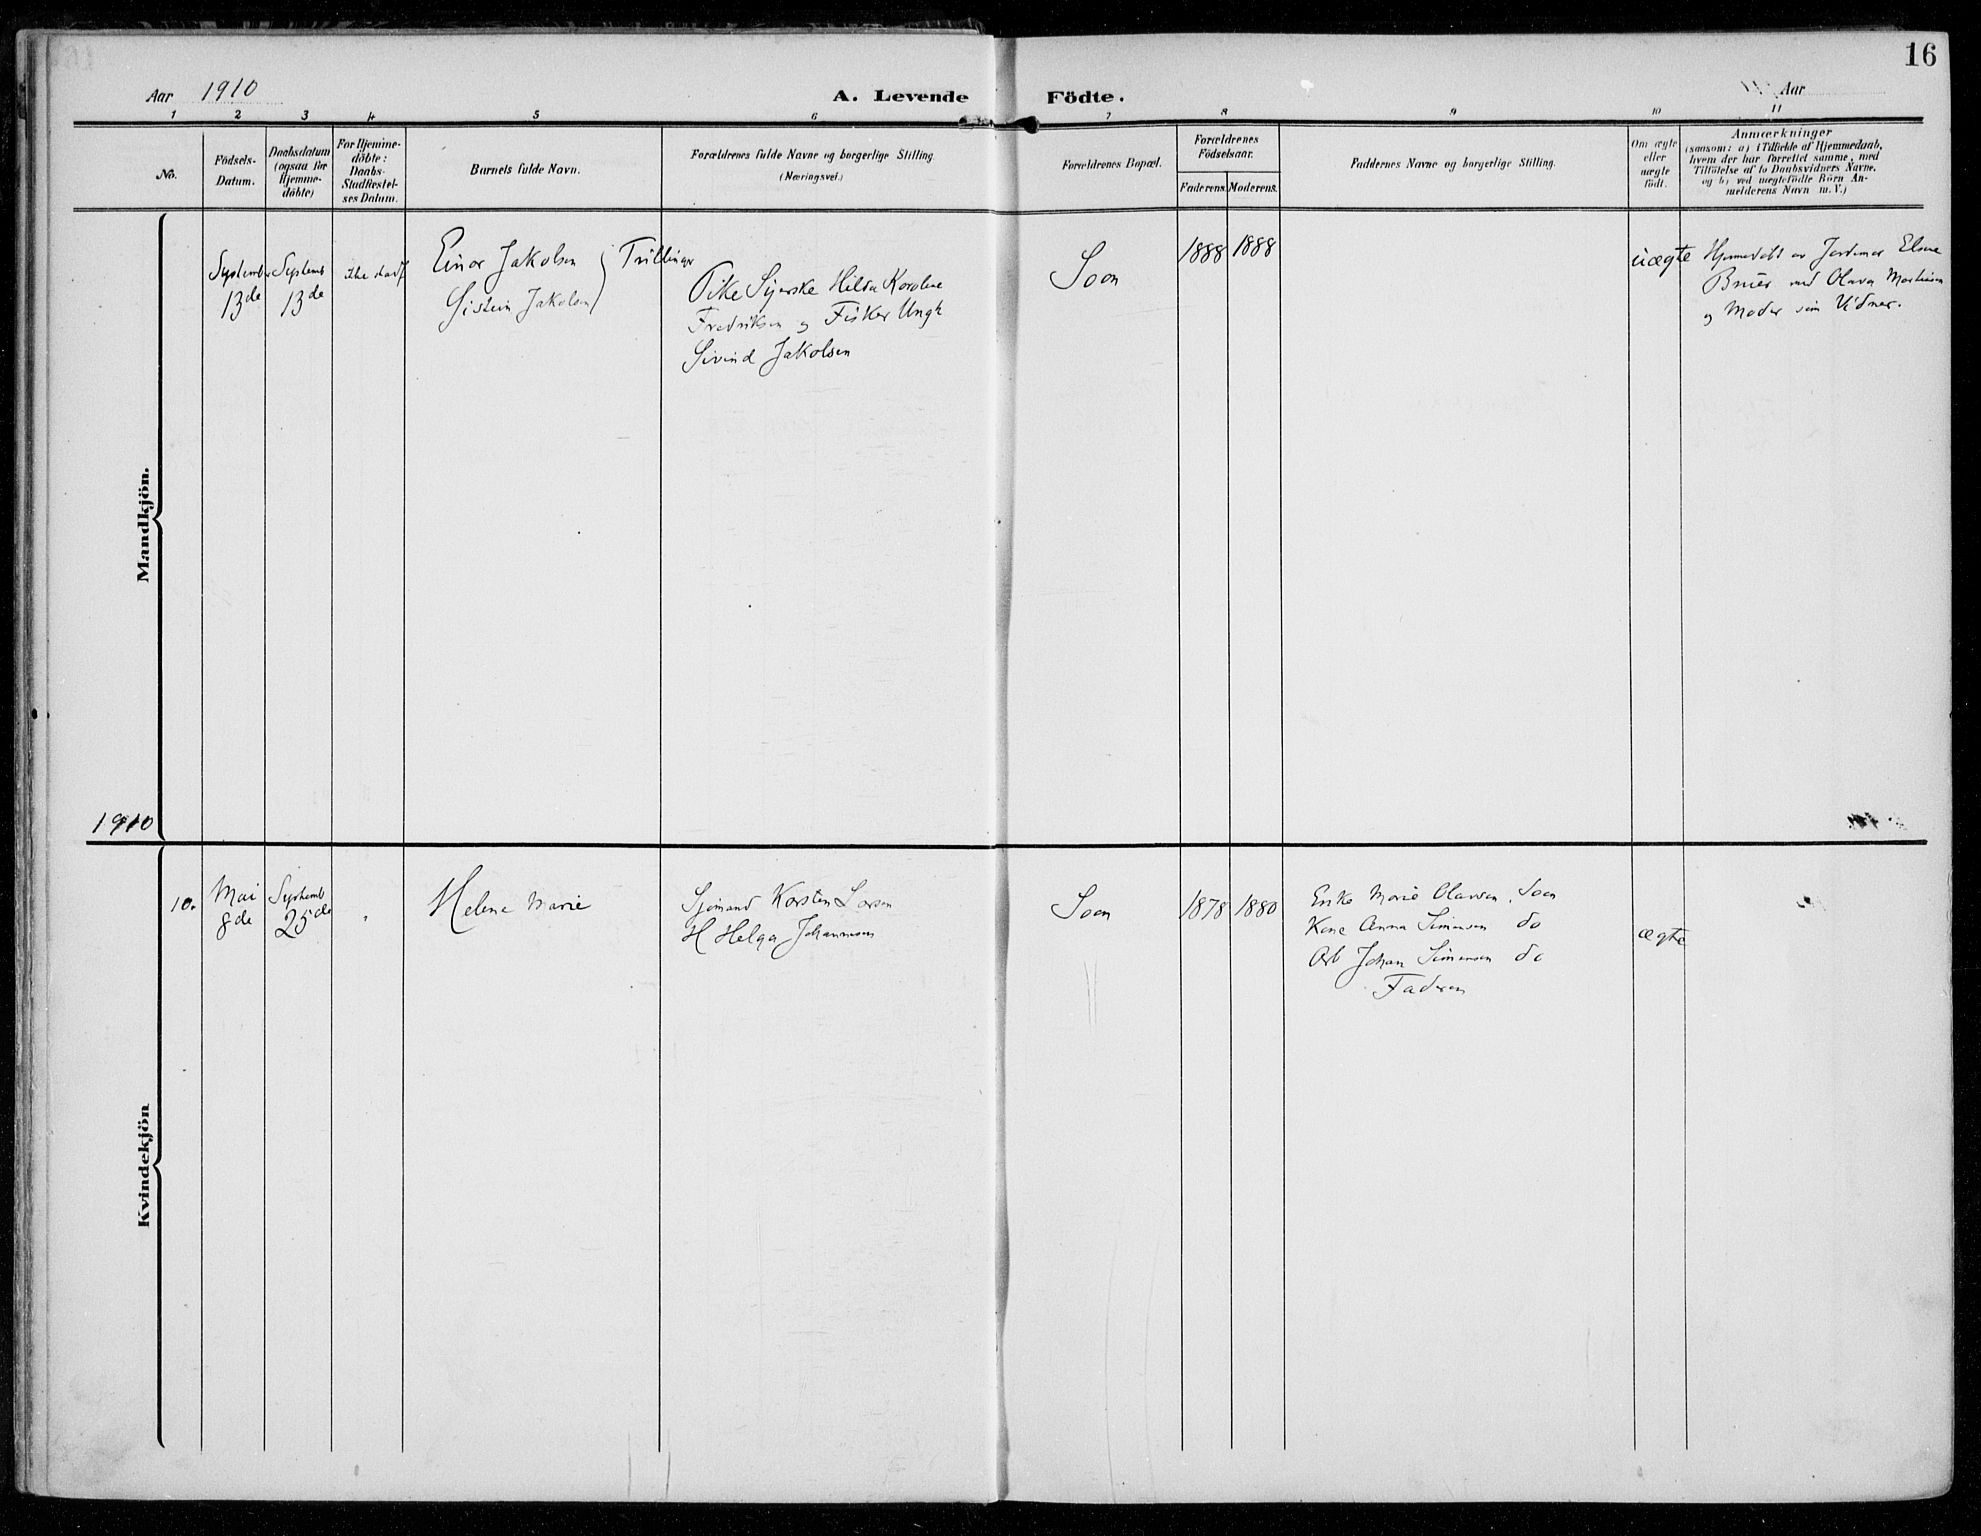 16
Aar 1910
A. Levende Födte.
Aar
1 2 3 4 5 6 7 8 9 10 11
No.
Födsels-
Datum.
Daabsdatum
(ogsaa for
Hjemme-
döbte)
For Hjemme-
döbte:
Daabs-
Stadfæstel-
ses Datum.
Barnets fulde Navn.
Forældrenes fulde Navne og borgerlige Stilling.
(Næringsvei.)
Forældrenes Bopæl.
Forældrenes
Födselsaar.
Faderens. Moderens.
Faddernes Navne og borgerlige Stilling.
Om ægte
eller
uægte
födt.
Anmærkninger
(saasom: a) i Tilfælde af Hjemmedaab,
hvem der har forrettet samme, med
Tilföielse af to Daabsvidners Navne.
og b) ved uægtefödte Börn An-
melderens Navn m. V.)
Mandkjön.
Septemb
13de
Septemb
13de
ikke stadf
Einar Jakobsen
Eistein Jakobsen
Trillinger
Pike Hilda Karoline
Fredriksen og Fisker Ungk
Eivind Jakobsen
Soon
1888
1888
uægte
Hjemmedøbt av Jordemor
med Olava Martinsen
og Moder som Vidner.
1910
Kvindekjön
10.
Mai
8de
Septemb
25de
"
Helene Marie
Sjömand Karsten Larsen
H Helga Johannesen
Soon
1878
1880
Enke Marie Olavsen, Soon
Kone Anna Simensen do
Arb Johan Simensen do
Faderen
ægte